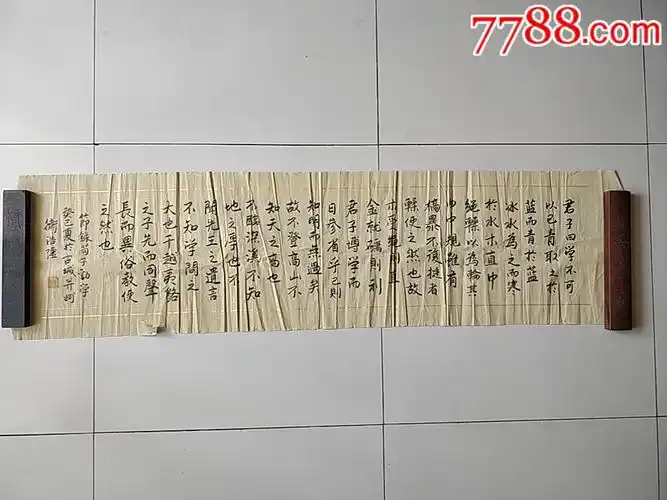 7788.com
君子曰学不可
以已青取之於
蓝而青於蓝
冰水為之而寒
於水木直中
绳輮以為輪其
曲中規雖有
槁暴不復挺者
輮使之然也故
木受绳則直
金就礪則利
君子博学而
日参省乎己則
知明而行無過矣
故不登高山不
知天之高也
不臨深溪不知
地之厚也不
聞先王之遺言
不知学問之
大也干越夷貉
之子生而同聲
長而異俗教使
之然也
節錄荀子勸学
癸巳夏於古城